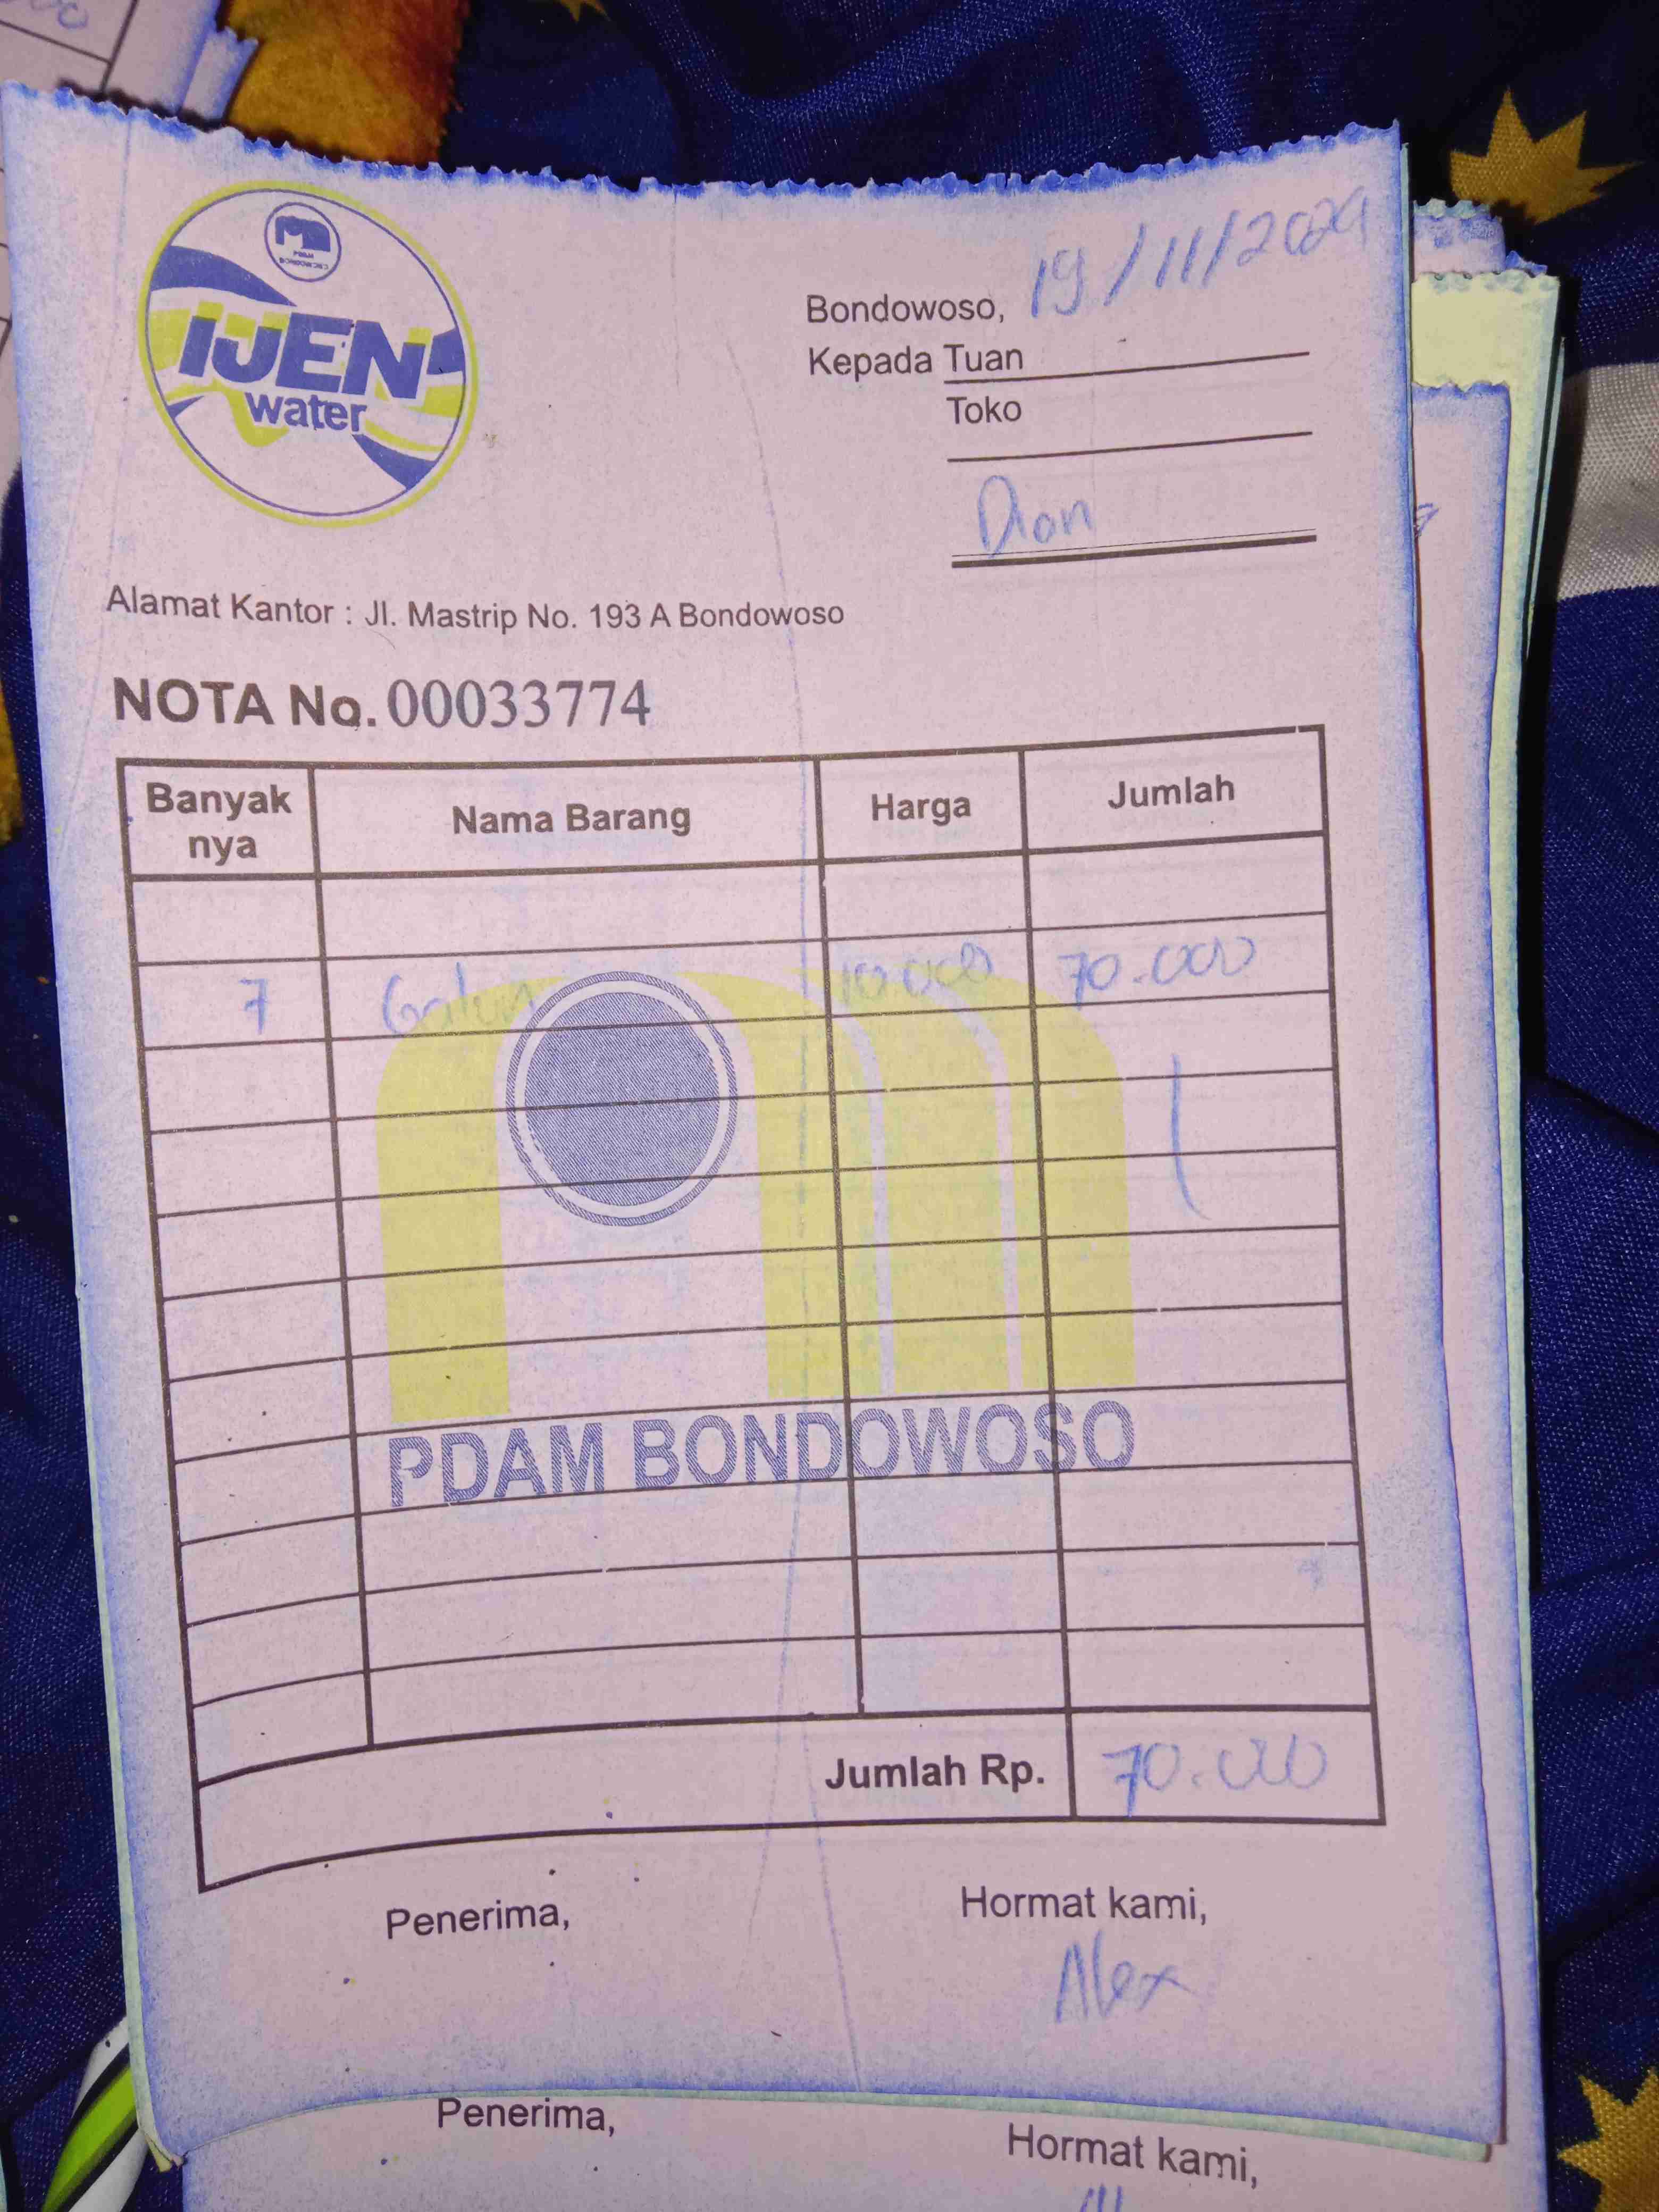 PDAM
BONDOWOSO
IJEN
water
Bondowoso, 19/11/2024
Kepada Tuan
Toko
Dion
Alamat Kantor : Jl. Mastrip No. 193 A Bondowoso
NOTA No. 00033774
Banyak nya Nama Barang Harga Jumlah
7 Galon 10.000 70.000
PDAM BONDOWOSO
Jumlah Rp. 70.000
Penerima, Hormat kami,
Alex
Penerima, Hormat kami,